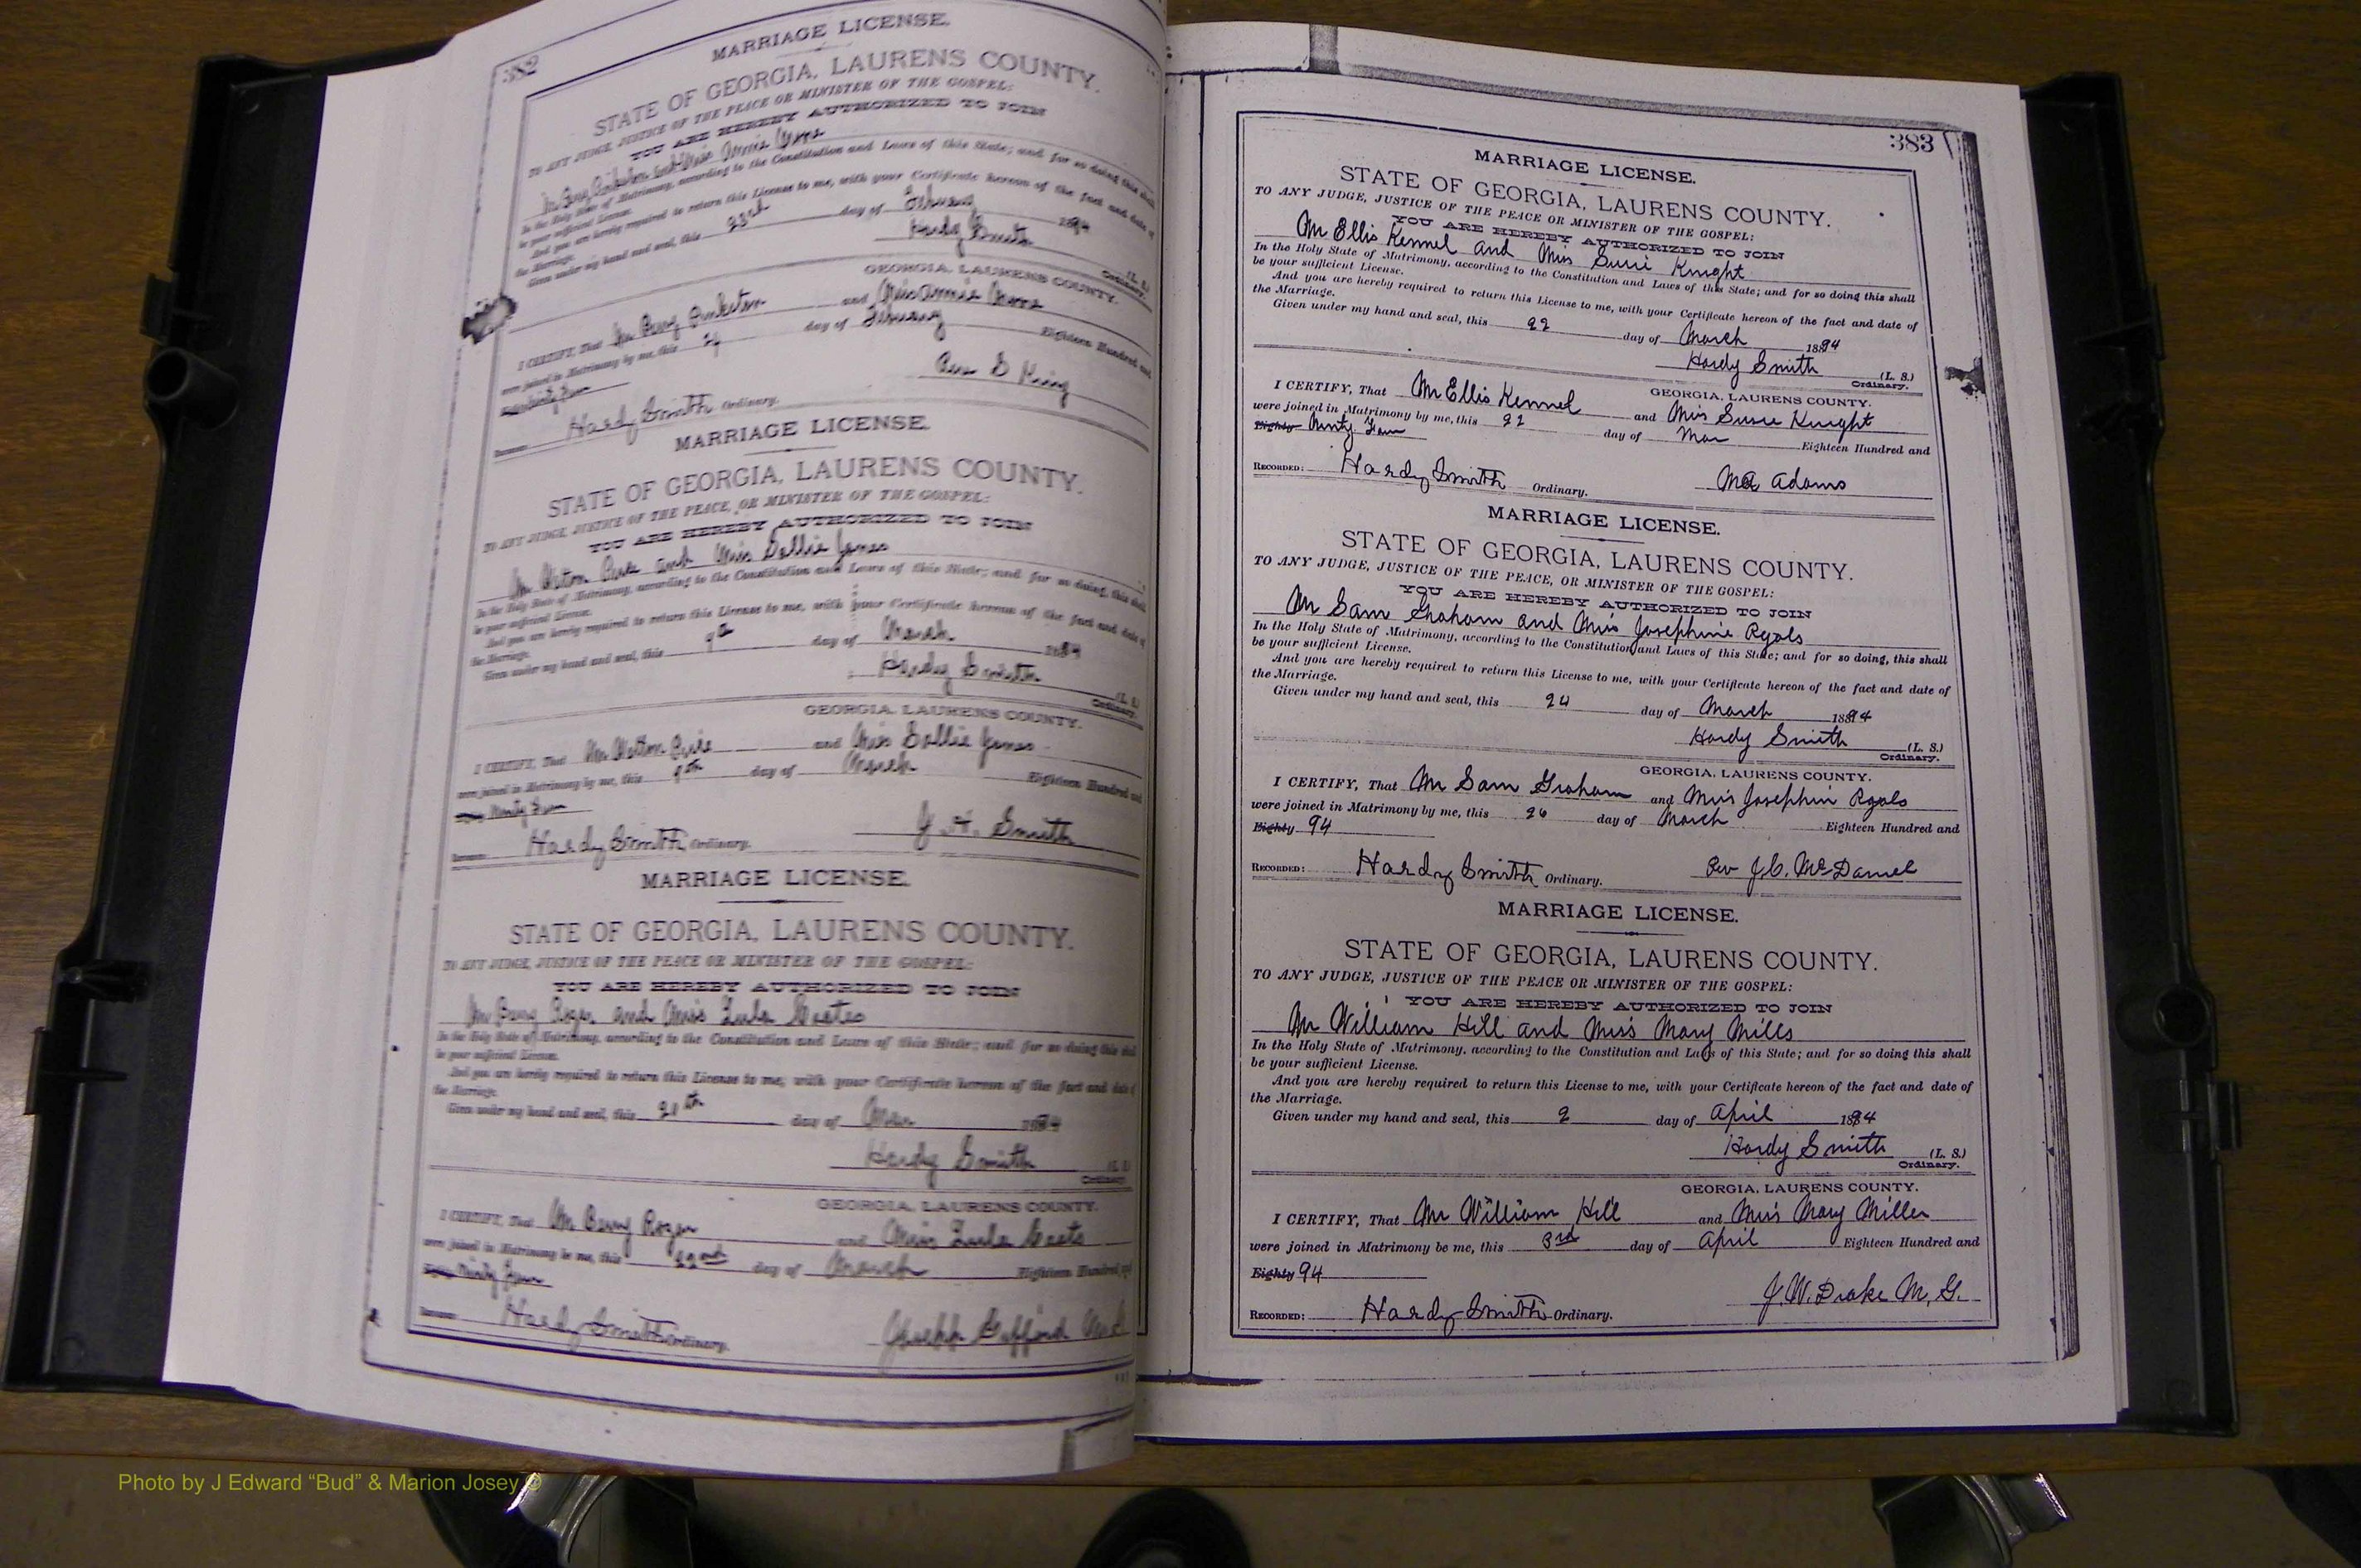 382
MARRIAGE LICENSE.
STATE OF GEORGIA, LAURENS COUNTY.
TO ANY JUDGE, JUSTICE OF THE PEACE OR MINISTER OF THE GOSPEL:
YOU ARE HEREBY AUTHORIZED TO JOIN
and Miss Annie
In the Holy State of Matrimony, according to the Constitution and Laws of this State; and for so doing this shall
be your sufficient License.
And you are hereby required to return this License to me, with your Certificate hereon of the fact and date of
the Marriage.
Given under my hand and seal, this 23rd day of February 1894
Hardy Smith (L. S.)
Ordinary.
GEORGIA, LAURENS COUNTY.
I CERTIFY, That Mr Berry and Miss Annie
were joined in Matrimony by me, this day of February Eighteen Hundred and
Ninety Four
King
Hardy Smith Ordinary.
MARRIAGE LICENSE.
STATE OF GEORGIA, LAURENS COUNTY.
TO ANY JUDGE, JUSTICE OF THE PEACE, OR MINISTER OF THE GOSPEL:
YOU ARE HEREBY AUTHORIZED TO JOIN
Mr and Miss Sallie Jones
In the Holy State of Matrimony, according to the Constitution and Laws of this State; and for so doing, this shall
be your sufficient License.
And you are hereby required to return this License to me, with your Certificate hereon of the fact and date of
the Marriage.
Given under my hand and seal, this 9th day of March 1894
Hardy Smith (L. S.)
Ordinary.
GEORGIA, LAURENS COUNTY.
I CERTIFY, That Mr and Miss Sallie Jones
were joined in Matrimony by me, this 9th day of March Eighteen Hundred and
Ninty Four
J. H. Smith
Hardy Smith Ordinary.
MARRIAGE LICENSE.
STATE OF GEORGIA, LAURENS COUNTY.
TO ANY JUDGE, JUSTICE OF THE PEACE OR MINISTER OF THE GOSPEL:
YOU ARE HEREBY AUTHORIZED TO JOIN
Mr Berry Roger and Miss Lula
In the Holy State of Matrimony, according to the Constitution and Laws of this State; and for so doing this shall
be your sufficient License.
And you are hereby required to return this License to me, with your Certificate hereon of the fact and date of
the Marriage.
Given under my hand and seal, this day of Mar 1894
Hardy Smith (L. S.)
Ordinary.
GEORGIA, LAURENS COUNTY.
I CERTIFY, That Mr Berry Roger and Miss Lula
were joined in Matrimony be me, this 22nd day of March Eighteen Hundred and
Ninty Four
Hardy Smith Ordinary. Joseph
383
MARRIAGE LICENSE.
STATE OF GEORGIA, LAURENS COUNTY.
TO ANY JUDGE, JUSTICE OF THE PEACE OR MINISTER OF THE GOSPEL:
YOU ARE HEREBY AUTHORIZED TO JOIN
Mr Ellis Kennel and Miss Susie Knight
In the Holy State of Matrimony, according to the Constitution and Laws of this State; and for so doing this shall
be your sufficient License.
And you are hereby required to return this License to me, with your Certificate hereon of the fact and date of
the Marriage.
Given under my hand and seal, this 22 day of March 1894
Hardy Smith (L. S.)
Ordinary.
GEORGIA, LAURENS COUNTY.
I CERTIFY, That Mr Ellis Kennel and Miss Susie Knight
were joined in Matrimony by me, this 22 day of Mar Eighteen Hundred and
Eighty Ninty Four
RECORDED: Hardy Smith Ordinary. Adams
MARRIAGE LICENSE.
STATE OF GEORGIA, LAURENS COUNTY.
TO ANY JUDGE, JUSTICE OF THE PEACE, OR MINISTER OF THE GOSPEL:
YOU ARE HEREBY AUTHORIZED TO JOIN
Mr Sam Graham and Miss Josephine Ryals
In the Holy State of Matrimony, according to the Constitution and Laws of this State; and for so doing, this shall
be your sufficient License.
And you are hereby required to return this License to me, with your Certificate hereon of the fact and date of
the Marriage.
Given under my hand and seal, this 24 day of March 1894
Hardy Smith (L. S.)
Ordinary.
GEORGIA, LAURENS COUNTY.
I CERTIFY, That Mr Sam Graham and Miss Josephin Ryals
were joined in Matrimony by me, this 26 day of March Eighteen Hundred and
Eighty 94
RECORDED: Hardy Smith Ordinary. Rev J. C. McDaniel
MARRIAGE LICENSE.
STATE OF GEORGIA, LAURENS COUNTY.
TO ANY JUDGE, JUSTICE OF THE PEACE OR MINISTER OF THE GOSPEL:
YOU ARE HEREBY AUTHORIZED TO JOIN
Mr William Hill and Miss Mary Mills
In the Holy State of Matrimony, according to the Constitution and Laws of this State; and for so doing this shall
be your sufficient License.
And you are hereby required to return this License to me, with your Certificate hereon of the fact and date of
the Marriage.
Given under my hand and seal, this 2 day of April 1894
Hardy Smith (L. S.)
Ordinary.
GEORGIA, LAURENS COUNTY.
I CERTIFY, That Mr William Hill and Miss Mary Miller
were joined in Matrimony be me, this 3rd day of April Eighteen Hundred and
Eighty 94
J. W. Drake M. G.
RECORDED: Hardy Smith Ordinary.
Photo by J Edward “Bud” & Marion Josey ©